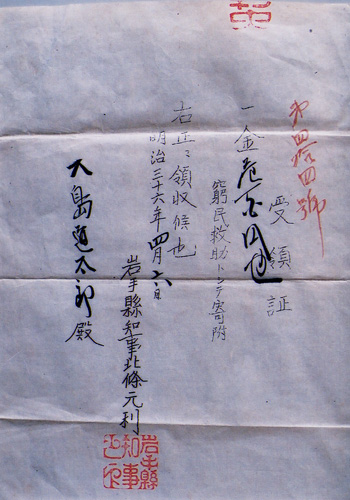 第四拾四號
受領証
一金壱百円也
窮民救助トシテ寄附
右正ニ領収候也
明治三十六年四月六日
岩手縣知事北條元利
大島道太郎殿
岩手縣知事之印